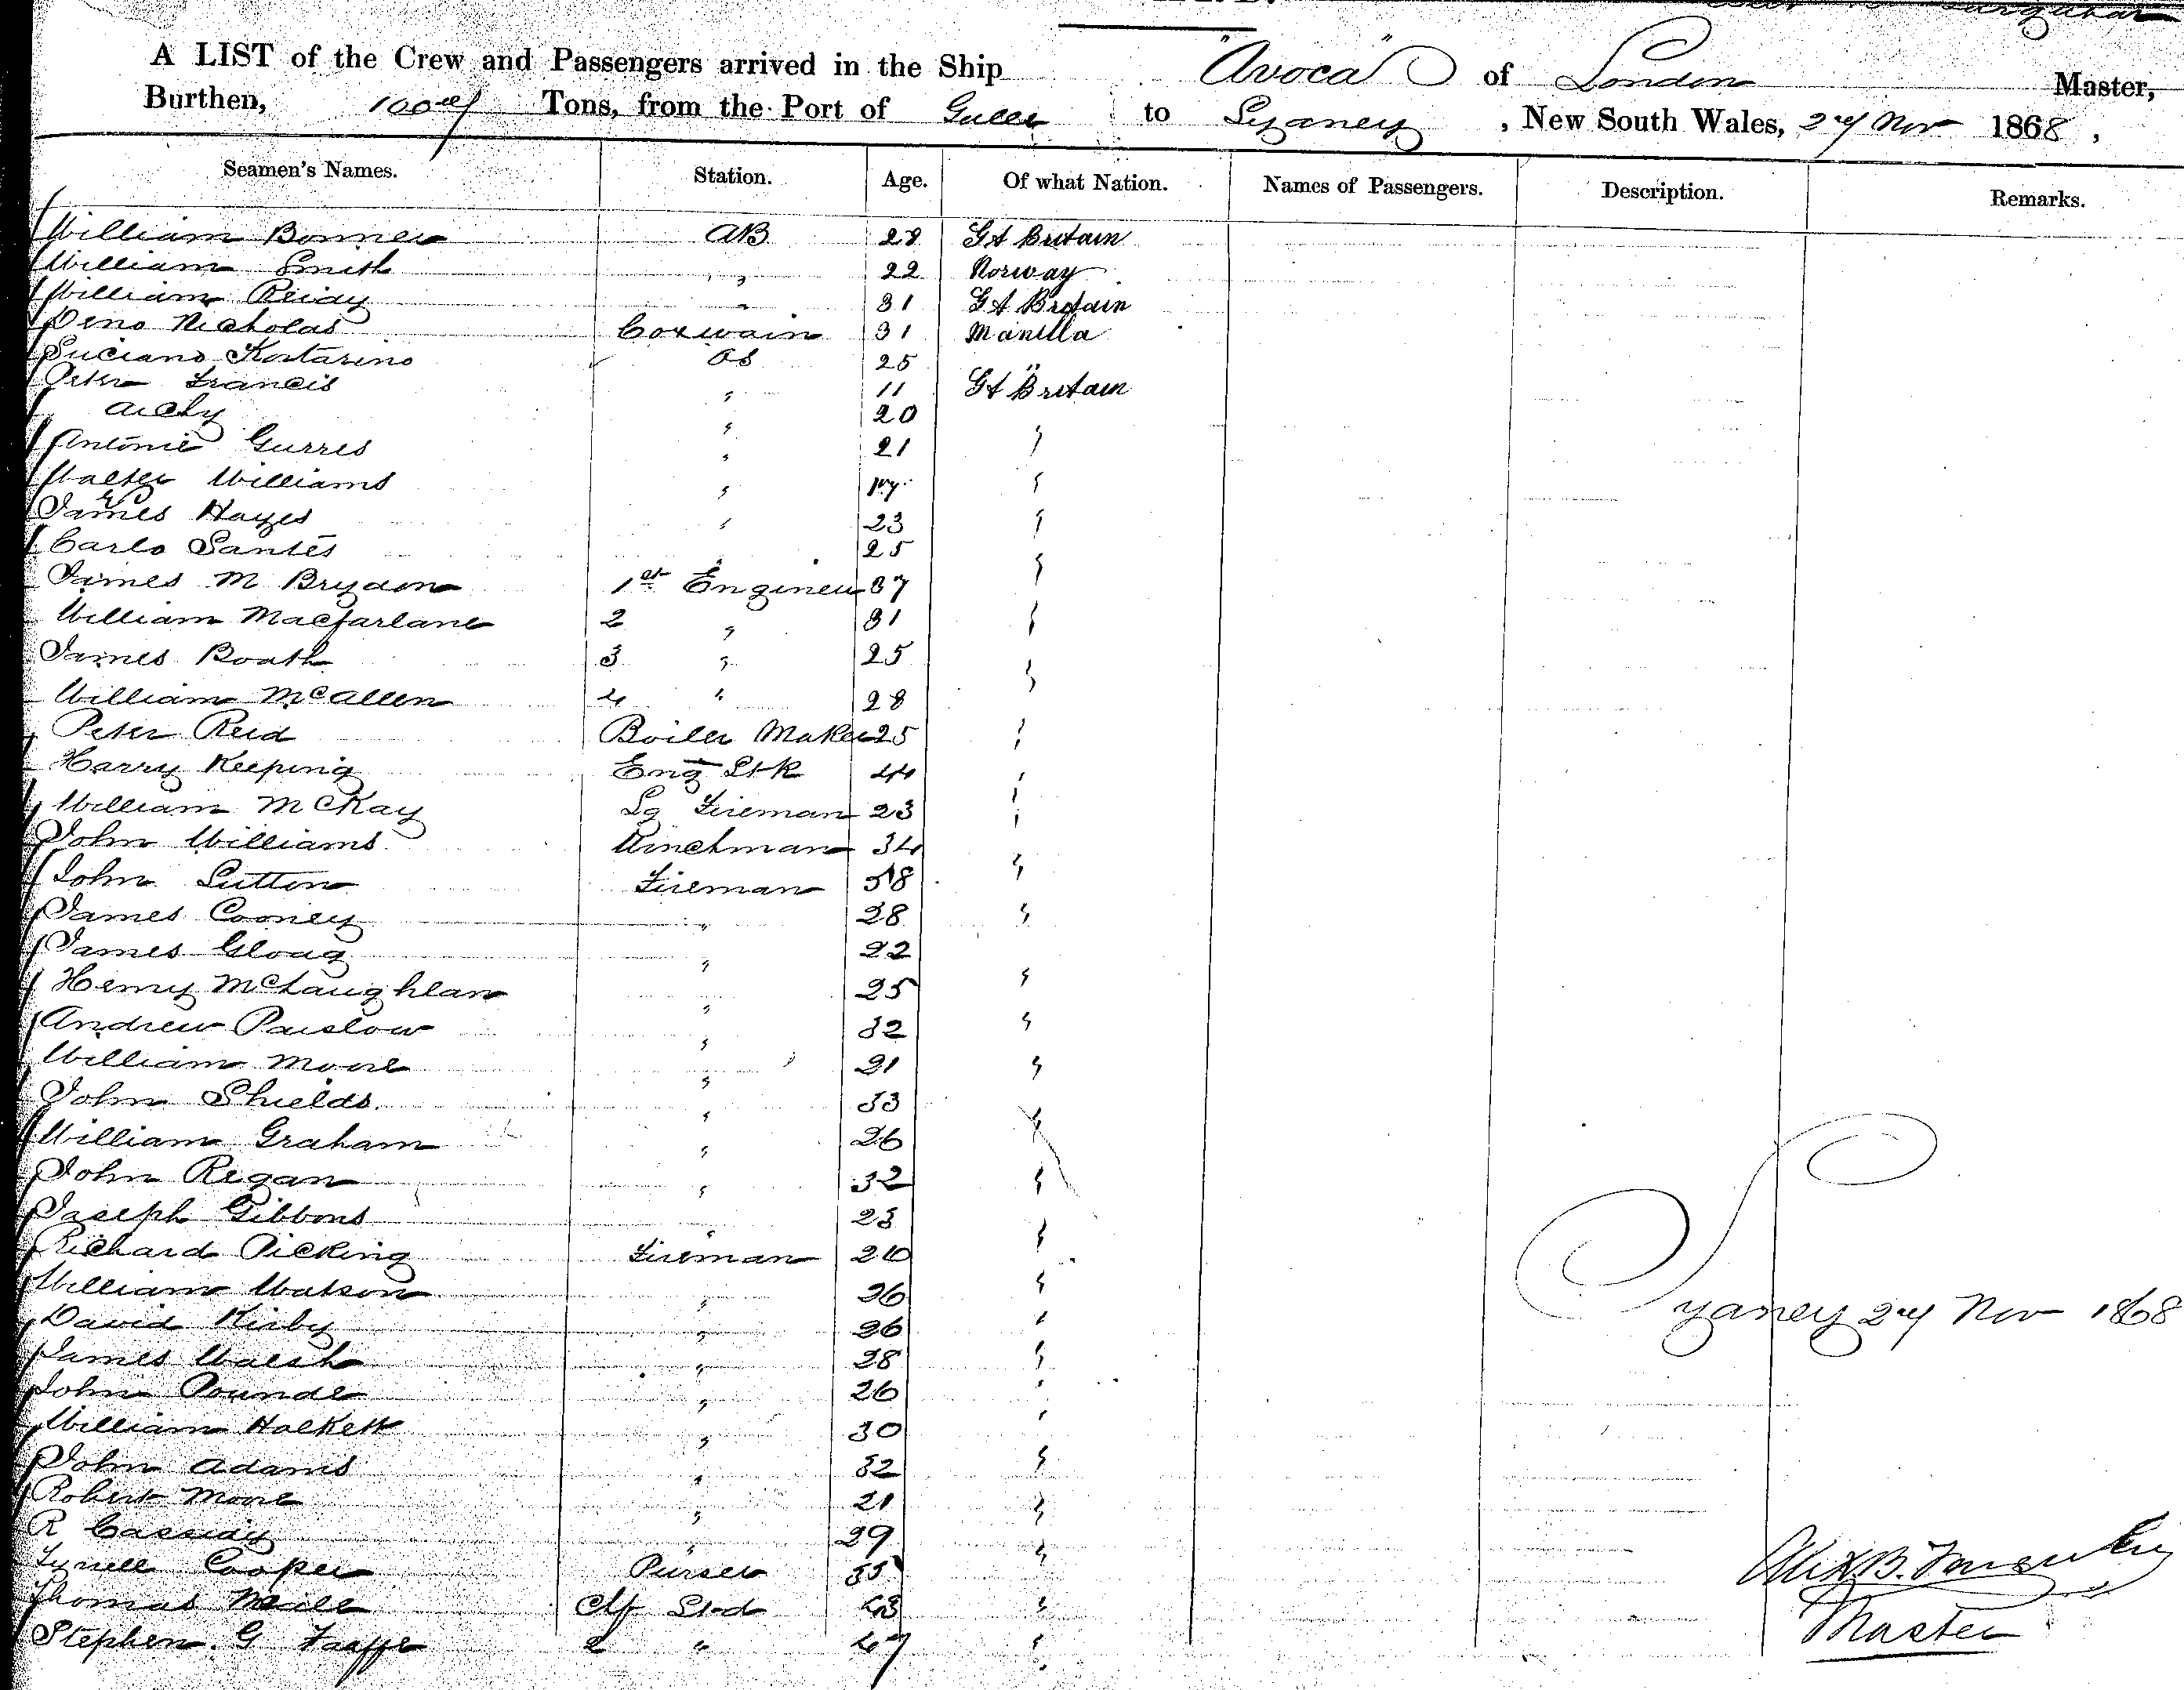 A LIST of the Crew and Passengers arrived in the Ship "Avoca" of London Master,
Burthen, Tons, from the Port of Galle to Sydney, New South Wales, 27 Nov 1868,
Seamen's Names. Station. Age. Of what Nation. Names of Passengers. Description. Remarks.
William Bonner AB 28 Gt Britain
William Smith " 22 Norway
William Reidy " 31 Gt Britain
Nicholas Coxwain 31 Manilla
Luciano 25 "
Peter Francis " 11 Gt Britain
" 20
Antonie " 21 "
Walter Williams " 17 "
James Hayes " 23 "
Carlo Santes " 25 "
James M Brydon 1st Engineer 37
William Macfarlane 2 " 31 "
James Boath 3 " 25 "
William McAllen 4 " 28
Peter Reid Boiler Maker 25 "
Harry Keeping Eng St-k 44 "
William McKay Lg Fireman 23 "
John Williams Winchman 34
John Sutton Fireman 38 "
James Cooney " 28 "
James Gloag " 22
Henry McLaughlan " 25 "
Andrew Paislow " 32 "
William Moore " 21 "
John Shields " 33 "
William Graham " 26
John Regan " 32 "
Joseph Gibbons " 23 "
Richard Picking Fireman 
William Watson " 26 "
David Kirby " 26 "
James Walsh " 28 "
John Pounde " 26 "
William Halkett " 30 "
John Adams " 32 "
Robert Moore " 21 "
R Cassidy " 29 "
Cooper Purser 35
Thomas Clf St-d 43 "
Stephen G 2 " 47 "
Sydney 27 Nov 1868
Alex B. Farquhar
Master